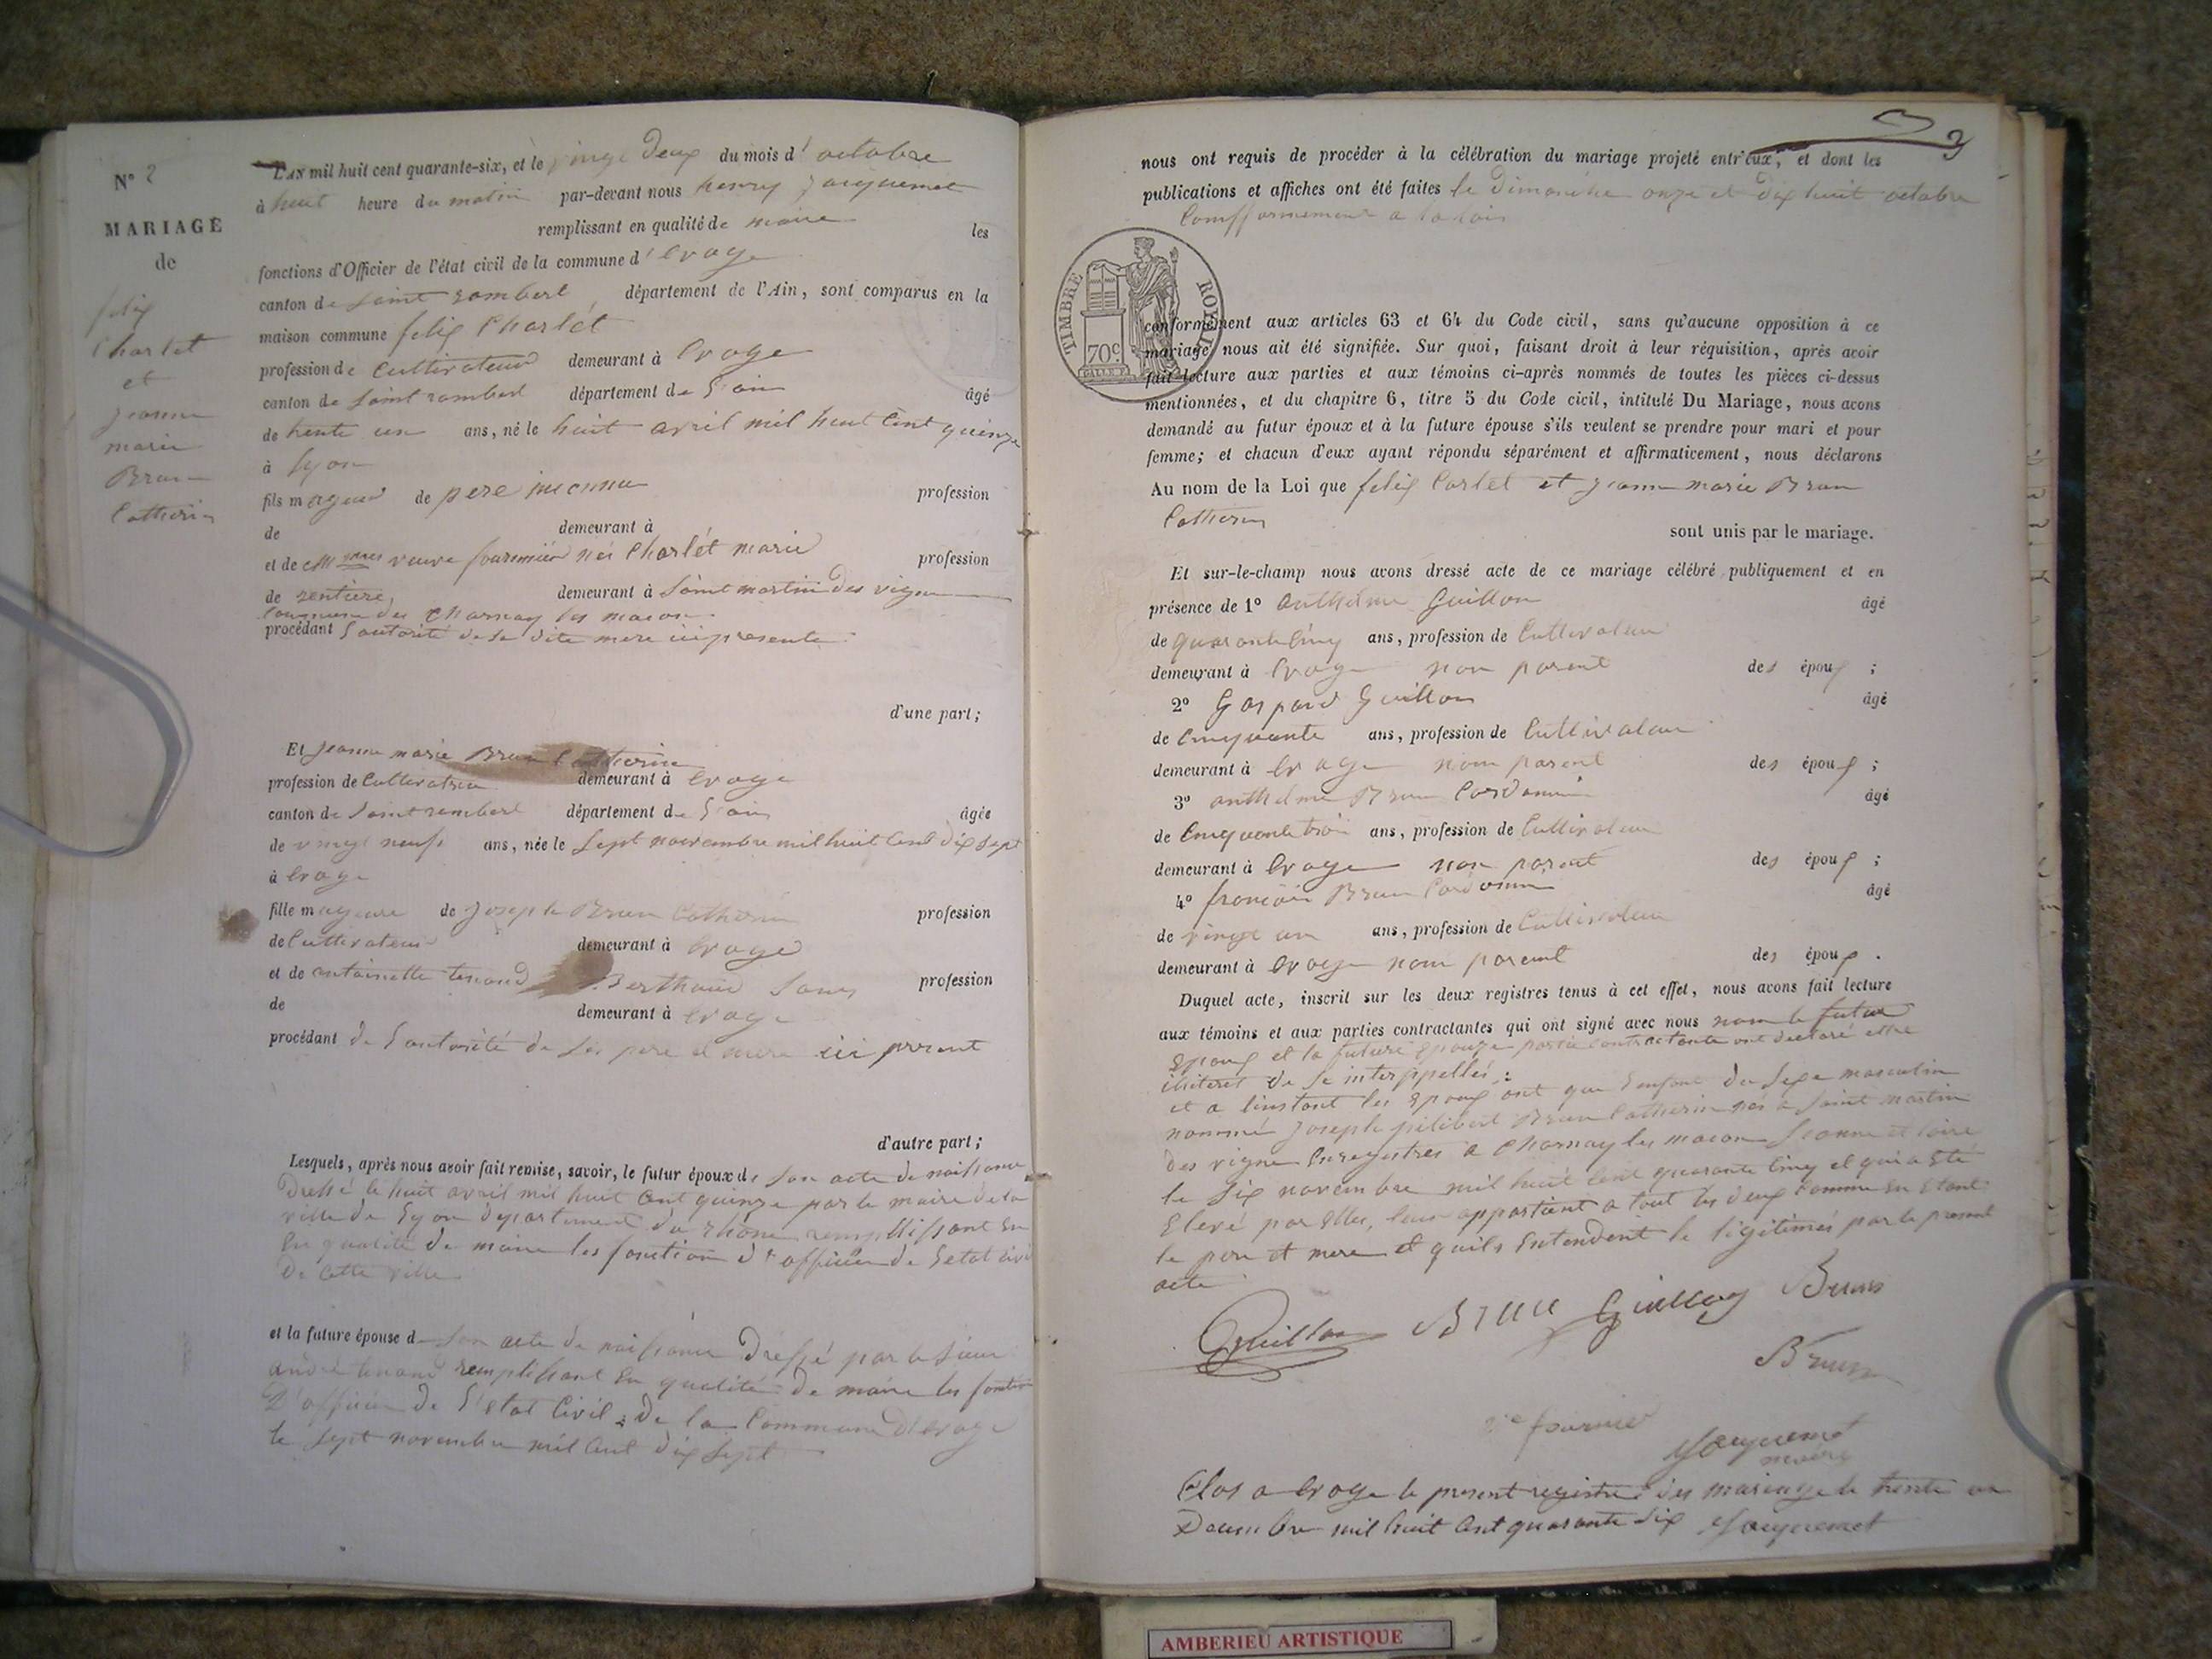 N° 2
MARIAGE
de
felix
Charlet
et
jeanne
marie
Brun
Catherin
L'AN mil huit cent quarante-six, et le vingt deux du mois d' octobre
à huit heure du matin par-devant nous henry jacquemet
remplissant en qualité de maire les
fonctions d'Officier de l'état civil de la commune d' evoge
canton de saint rambert, département de l'Ain, sont comparus en la
maison commune felix Charlet
profession de cultivateur demeurant à evoge
canton de saint rambert département de l'ain âgé
de trente un ans, né le huit avril mil huit cent quinze
à lyon
fils majeur de pere inconnu profession
de demeurant à
et de veuve née Charlét marie profession
de rentiere, demeurant à saint martin des vigne
commune de Charnay les macon
procédant l'autorité de sa dite mere ici presente
d'une part;
Et jeanne marie Brun Catherin
profession de Cultivatrice demeurant à evoge
canton de saint rambert département de l'ain âgée
de vingt neuf ans, née le sept novembre mil huit cent dix sept
à evoge
fille majeure de joseph Brun Catherin profession
de Cultivateur demeurant à evoge
et de antoinette tenand Berthoud profession
de demeurant à evoge
procédant de l'autorité de ses pere et mere ici present
d'autre part;
Lesquels, après nous avoir fait remise, savoir, le futur époux de son acte de naissance
Dressé le huit avril mil huit cent quinze par le maire de la
ville de Lyon departement du rhône remplissant en
en qualité de maire les fonction d'officier de l'etat civil
de cette ville
et la future épouse d son acte de naissance Dressé par le sieur
andré tenand remplissant en qualité de maire les fonction
D'officier de l'Etat Civil de la Commune d'evoge
le sept novembre mil cent dix sept
nous ont requis de procéder à la célébration du mariage projeté entr'eux, et dont les
publications et affiches ont été faites le Dimanche onze et dix huit octobre
Comfformement a la lois
TIMBRE ROYAL
70c.
conformément aux articles 63 et 64 du Code civil, sans qu'aucune opposition à ce
mariage nous ait été signifiée. Sur quoi, faisant droit à leur réquisition, après avoir
fait lecture aux parties et aux témoins ci-après nommés de toutes les pièces ci-dessus
mentionnées, et du chapitre 6, titre 5 du Code civil, intitulé Du Mariage, nous avons
demandé au futur époux et à la future épouse s'ils veulent se prendre pour mari et pour
femme; et chacun d'eux ayant répondu séparément et affirmativement, nous déclarons
Au nom de la Loi que felix Carlet et jeanne marie Brun
Catherin
sont unis par le mariage.
Et sur-le-champ nous avons dressé acte de ce mariage célébré publiquement et en
présence de 1° anthelme Guillon âgé
de quarante cinq ans, profession de Cultivateur
demeurant à evoge non parent des époux ;
2° Gaspard Guillon âgé
de cinquante ans, profession de Cultivateur
demeurant à evoge nom parent des époux ;
3° anthelme Brun Cardonnin âgé
de Cinquante trois ans, profession de Cultivateur
demeurant à evoge non parent des époux ;
4° françois Brun Cardonnin âgé
de vingt un ans, profession de Cultivateur
demeurant à evoge nom parent des époux .
Duquel acte, inscrit sur les deux registres tenus à cet effet, nous avons fait lecture
aux témoins et aux parties contractantes qui ont signé avec nous nom le futur
Epoux et la future Epouze partie contractante ont declaré estre
illiteret de se interppellés :
et a linstant les Epoux ont que l'enfant du sexe masculin
nommé joseph pilibert Brun Catherin nés a saint martin
des vigne enregistrés a Charnay les macon saonne et loire
le six novembre mil huit cent quarante cinq et qui a Eté
Elevé par elles, leur appartient a tout les deux comme en etant
le pere et mere et quils Entendent le légitimés par le present
acte
Guillon Brun Guillon Brun
Brun
ve fournier
Jacquemet
maire
Clos a evoge le present registre des mariage le trente un
Decembre mil huit cent quarante six Jacquemet
AMBERIEU ARTISTIQUE